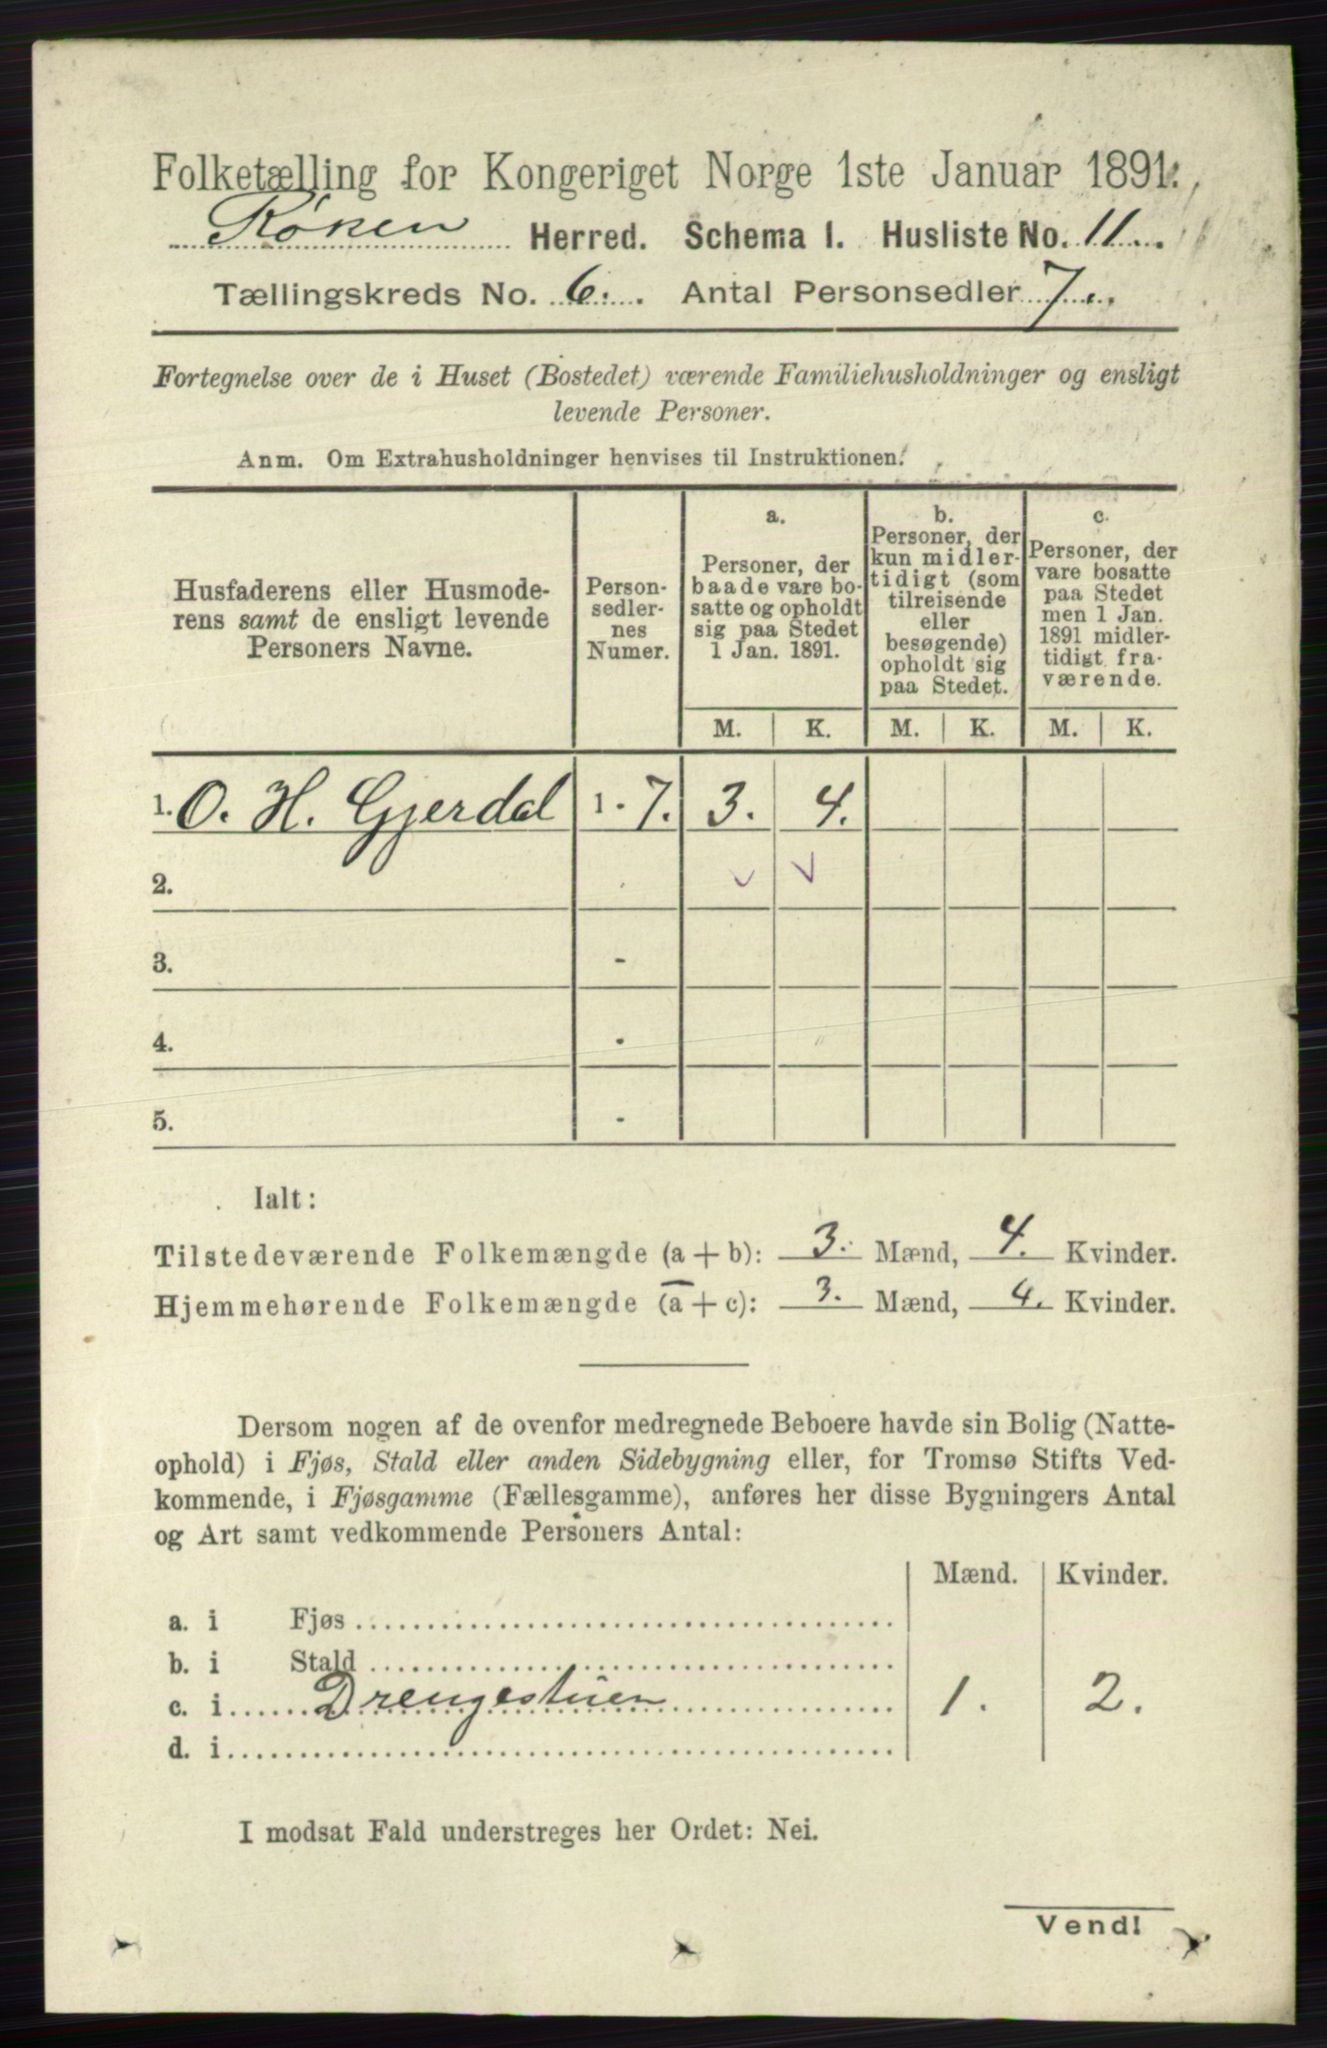 Folketælling for Kongeriget Norge 1ste Januar 1891.
Røken Herred. Schema I. Husliste No. 11.
Tællingskreds No. 6. Antal Personsedler 7.
Fortegnelse over de i Huset (Bostedet) værende Familiehusholdninger og ensligt
levende Personer.
Anm. Om Extrahusholdninger henvises til Instruktionen.
Husfaderens eller Husmode-
rens samt de ensligt levende
Personers Navne.
Person-
sedler-
nes
Numer.
a.
Personer, der
baade vare bo-
satte og opholdt
sig paa Stedet
1 Jan. 1891.
b.
Personer, der
kun midler-
tidigt (som
tilreisende
eller
besøgende)
opholdt sig
paa Stedet.
c.
Personer, der
vare bosatte
paa Stedet
men 1 Jan.
1891 midler-
tidigt fra-
værende.
M. K. M. K. M. K.
1. O. H. Gjerdal 1 - 7. 3. 4.
2.
3. -
4. -
5. -
Ialt:
Tilstedeværende Folkemængde (a + b): 3. Mænd, 4. Kvinder.
Hjemmehørende Folkemængde (a + c): 3. Mænd, 4. Kvinder.
Dersom nogen af de ovenfor medregnede Beboere havde sin Bolig (Natte-
ophold) i Fjøs, Stald eller anden Sidebygning eller, for Tromsø Stifts Ved-
kommende, i Fjøsgamme (Fællesgamme), anføres her disse Bygningers Antal
og Art samt vedkommende Personers Antal:
Mænd. Kvinder.
a. i Fjøs
b. i Stald
c. i Drengestuen 1. 2.
d. i
I modsat Fald understreges her Ordet: Nei.
Vend!